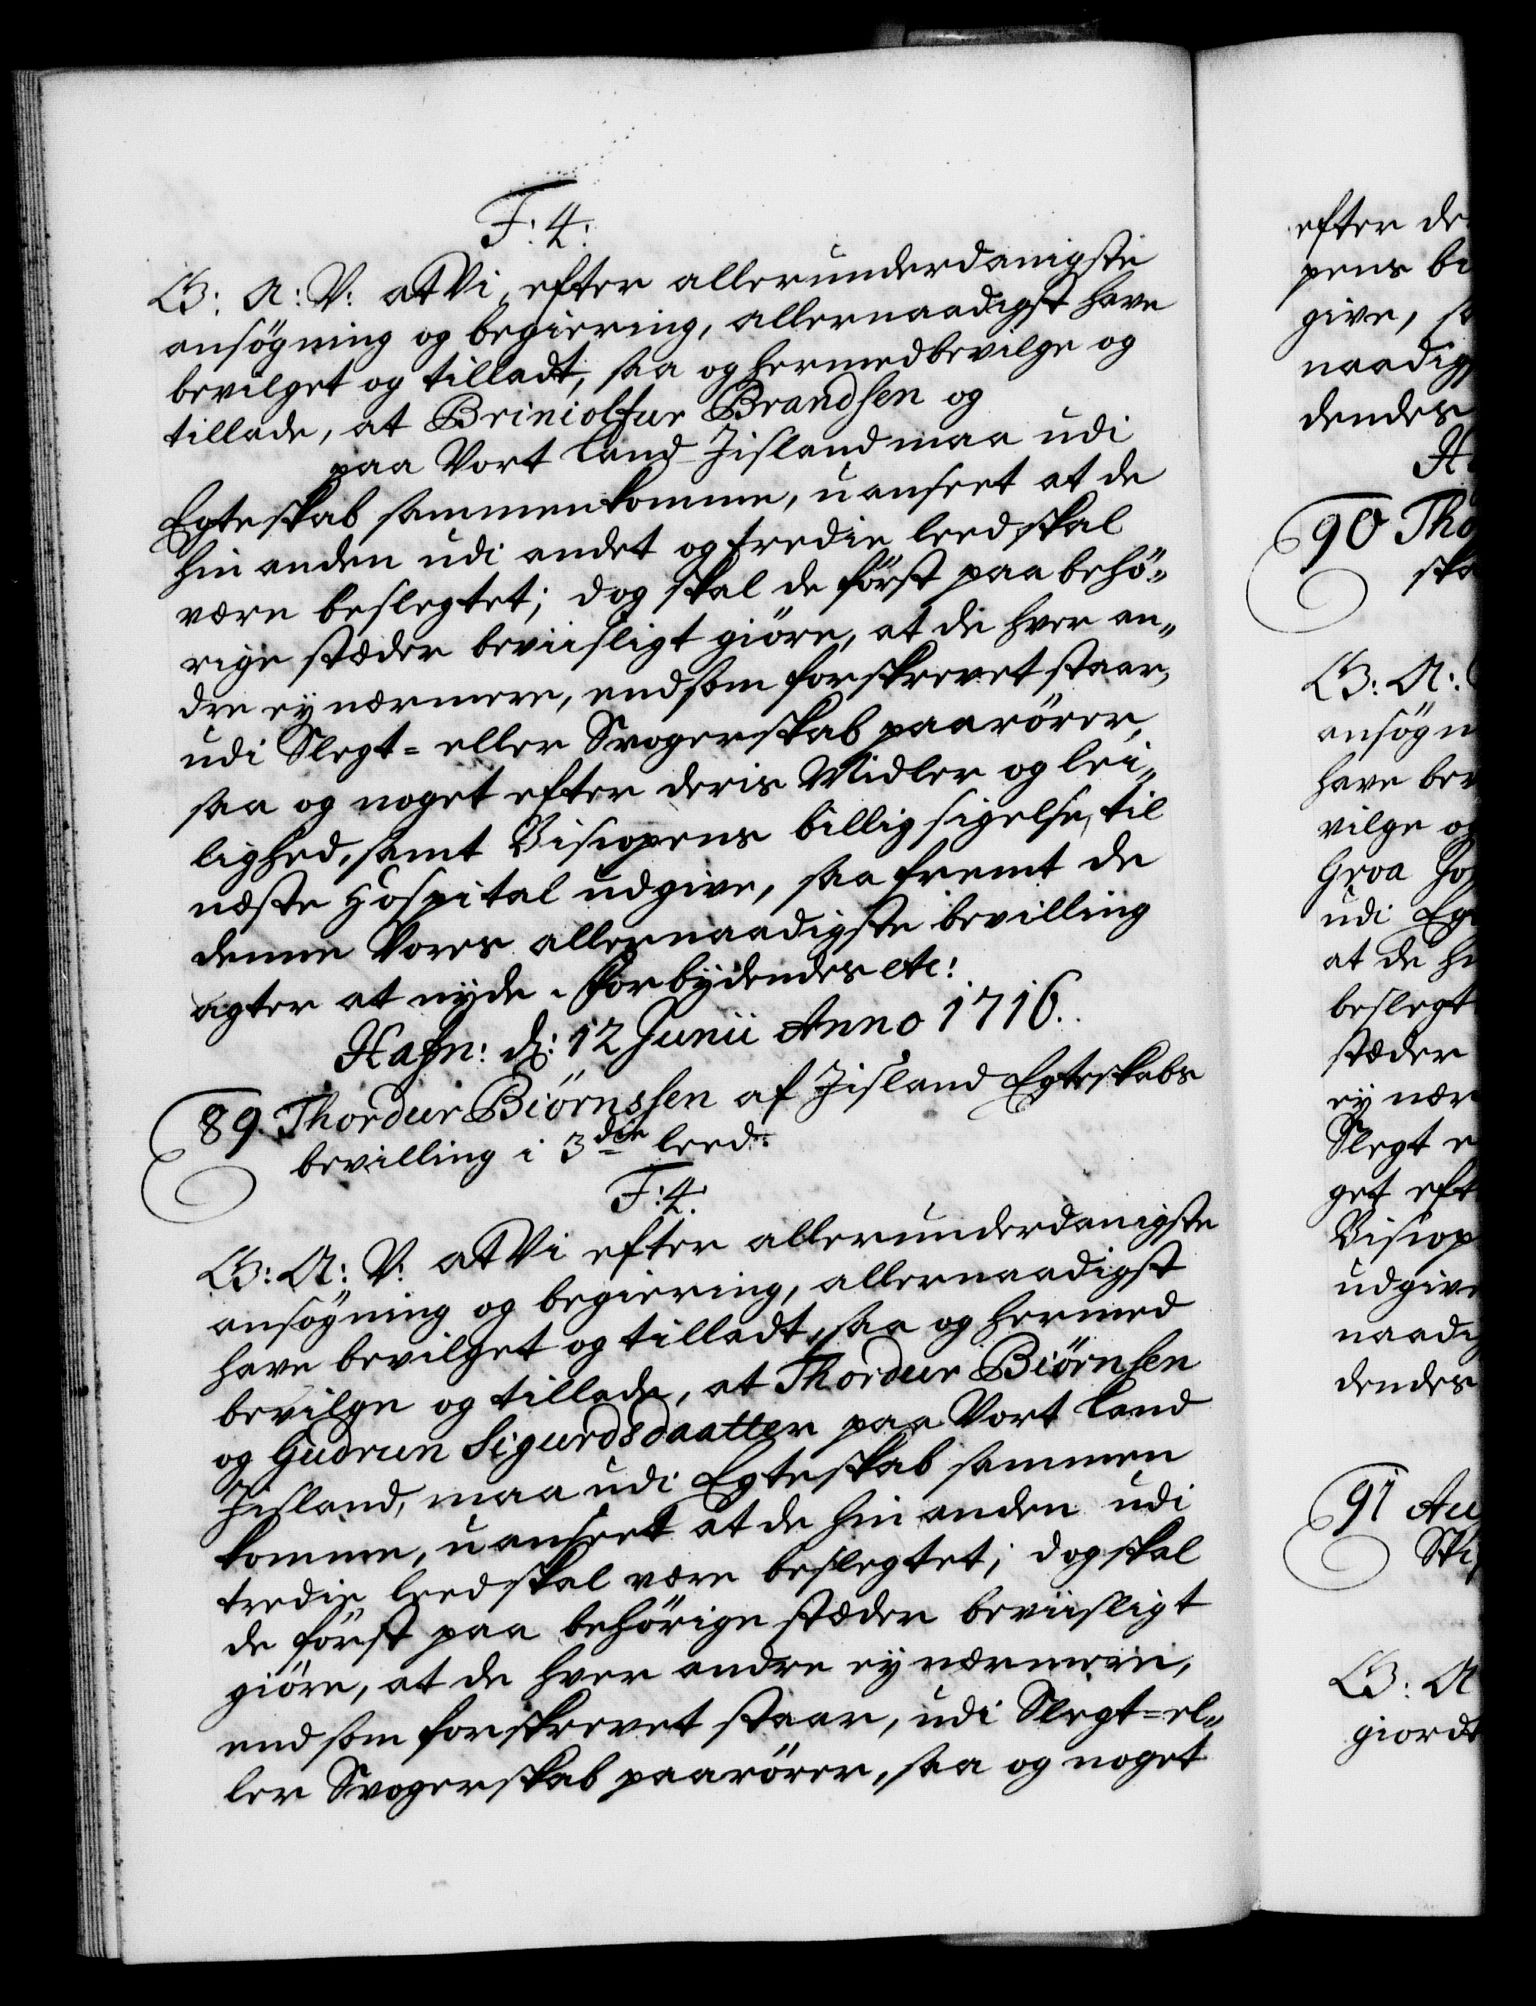 F: 4:
G: A: V: at Vi, efter allerunderdanigste
ansøgning og begiering, allernaadigst have
bevilget og tilladt, saa og hermed bevilge og
tillade, at Briniolfur Brandsen og
paa Vort Land Jisland maa udi
Egteskab sammenkomme, uanseet at de
hin anden udi andet og tredie leed skal
være beslegtet; dog skal de först paa behö„
rige stæder beviisligt giöre, at de hver an„
dre ey nærmere, end som forskrevet staar,
udi Slegt= eller Svogerskab paarörer,
saa og noget efter deris Midler og lei„
lighed, samt Biscopens billig sigelse, til
næste Hospital udgive, saa fremt de
denne Vores allernaadigste bevilling
agter at nyde. Forbydendes etc:
Hafn: d: 12 Junii Anno 1716.
89. Thordur Biörnssen af Jisland Egteskabs
bevilling i 3die leed.
F: 4.
G: A: V: at Vi efter allerunderdanigste
ansøgning og begiering, allernaadigst
have bevilget og tilladt, saa og hermed
bevilge og tillade, at Thordur Biörnsen
og Gudrun Sigurdsdaatter paa Vort Land
Jisland, maa udi Egteskab sammen
komme, uanseet at de hin anden udi
tredie leed skal være beslegtet; dog skal
de först paa behörige stæder beviisligt
giöre, at de hver andre ey nærmere,
end som forskrevet staar, udi Slegt= el„
ler Svogerskab paarörer, saa og noget
efter de
pens bi
give, s
naadigs
dendes
H
90 Tho
ska
G: A:
ansøgn
have bev
vilge og
Groa Jo
udi Eg
at de hi
beslegt
stæder
ey nær
Slegt e
get eft
Biscop
udgive
naadi
dendes
91 Au
Ski
G: A
giordt